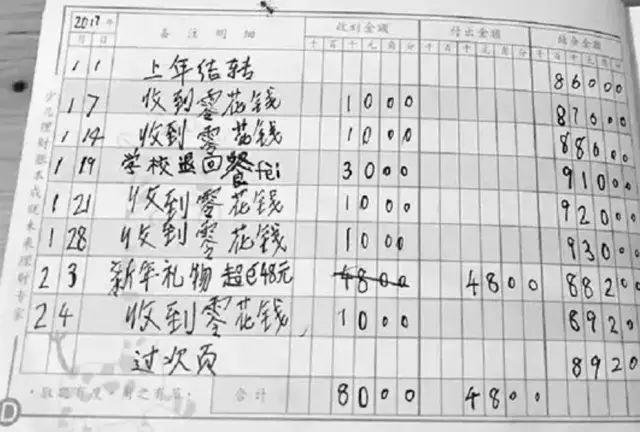 2017年
月 日 备注明细 收到金额 付出金额 结余金额
千 百 十 元 角 分 千 百 十 元 角 分 千 百 十 元 角 分
1 1 上年结转 86000
1 7 收到零花钱 1000 87000
1 14 收到零花钱 1000 88000
1 19 学校退回餐fei 3000 91000
1 21 收到零花钱 1000 92000
1 28 收到零花钱 1000 93000
2 3 新年礼物 超过48元 4800 4800 88200
2 4 收到零花钱 1000 8920
过次页 8920
合计 8000 4800
少儿理财账本成就未来理财专家
D